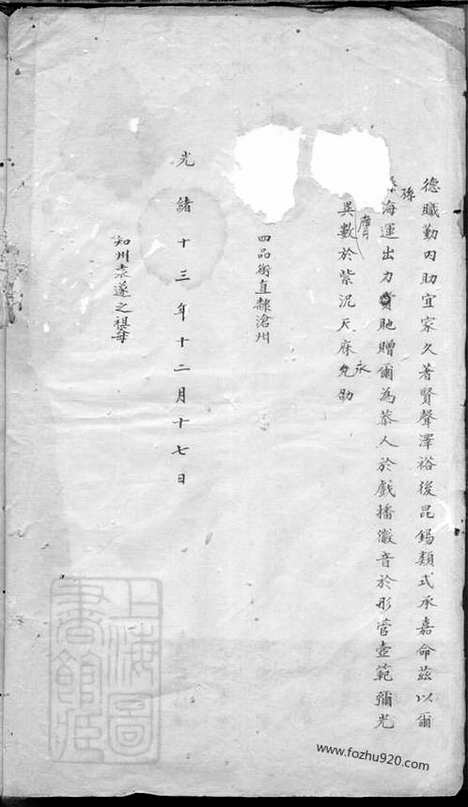 德職勤內助宜家久著賢聲澤裕後昆錫類式承嘉命茲以爾
孫
海運出力貤贈爾為恭人於戲播徽音於彤管壺範彌光
膺異數於紫泥天庥允劭
永
四品銜直隸滄州
光緒十三年十二月十七日
知州袁遂之祖母
上海圖書館藏
www.fozhu920.com